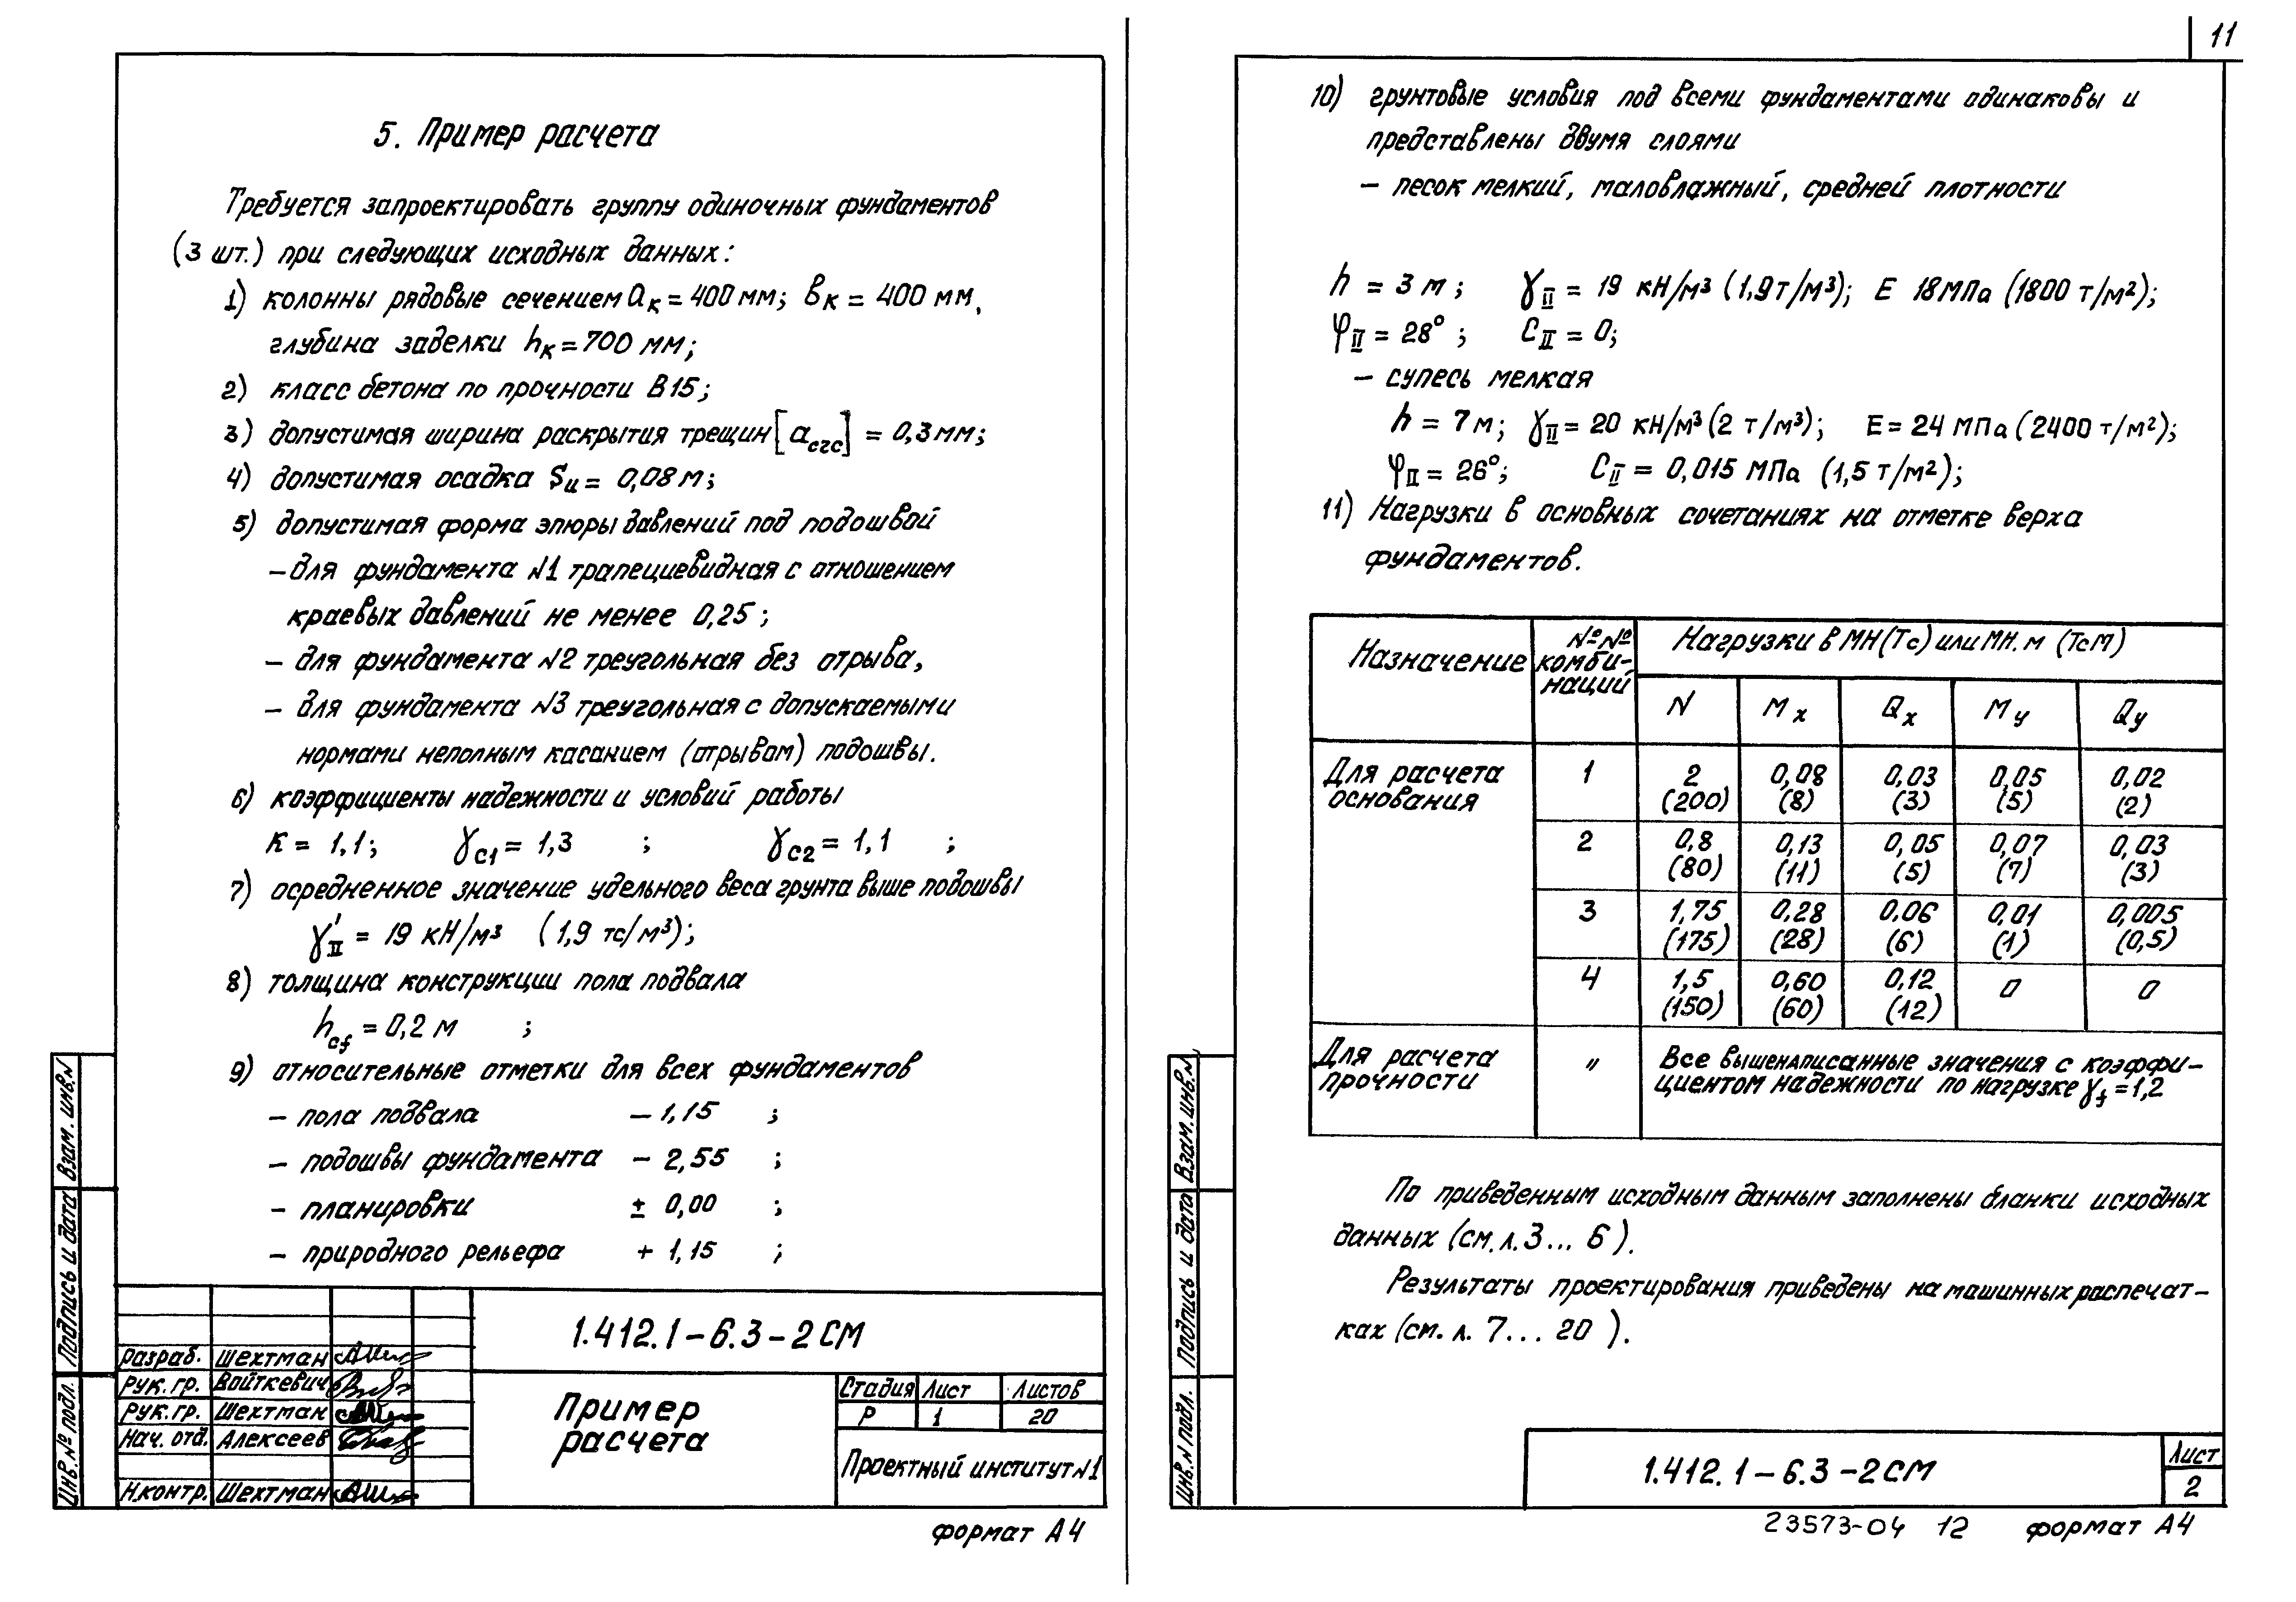 5. Пример расчета
Требуется запроектировать группу одиночных фундаментов
(3 шт.) при следующих исходных данных:
1) колонны рядовые сечением aк = 400 мм; вк = 400 мм,
глубина заделки hк = 700 мм;
2) класс бетона по прочности В15;
3) допустимая ширина раскрытия трещин [acrc] = 0,3 мм;
4) допустимая осадка Su = 0,08 м;
5) допустимая форма эпюры давлений под подошвой
– для фундамента N1 трапециевидная с отношением
краевых давлений не менее 0,25;
– для фундамента N2 треугольная без отрыва,
– для фундамента N3 треугольная с допускаемыми
нормами неполным касанием (отрывом) подошвы.
6) коэффициенты надежности и условий работы
К = 1,1; γc1 = 1,3 ; γc2 = 1,1 ;
7) осредненное значение удельного веса грунта выше подошвы
γ'II = 19 кН/м³ (1,9 тс/м³);
8) толщина конструкции пола подвала
hcf = 0,2 м ;
9) относительные отметки для всех фундаментов
– пола подвала – 1,15 ;
– подошвы фундамента – 2,55 ;
– планировки ± 0,00 ;
– природного рельефа + 1,15 ;
Взам. инв.N
Подпись и дата
Инв.№ подл.
Разраб. Шехтман
Рук. гр. Войткевич
Рук. гр. Шехтман
Нач. отд. Алексеев
Н.контр. Шехтман
1.412.1–6.3–2СМ
Пример
расчета
Стадия Лист Листов
Р 1 20
Проектный институт N1
формат А4
11
10) грунтовые условия под всеми фундаментами одинаковы и
представлены двумя слоями
– песок мелкий, маловлажный, средней плотности
h = 3 м; γII = 19 кН/м³ (1,9т/м³); E 18МПа (1800 т/м²);
φII = 28°; CII = 0;
– супесь мелкая
h = 7 м; γII = 20 кН/м³ (2 т/м³); E = 24 МПа (2400 т/м²);
φII = 26°; CII = 0,015 МПа (1,5 т/м²);
11) Нагрузки в основных сочетаниях на отметке верха
фундаментов.
Назначение №№ комби-наций Нагрузки в МН(Тс) или МН.м (ТсМ)
N Mx Qx My Qy
Для расчета основания 1 2 (200) 0,08 (8) 0,03 (3) 0,05 (5) 0,02 (2)
2 0,8 (80) 0,13 (11) 0,05 (5) 0,07 (7) 0,03 (3)
3 1,75 (175) 0,28 (28) 0,06 (6) 0,01 (1) 0,005 (0,5)
4 1,5 (150) 0,60 (60) 0,12 (12) 0 0
Для расчета прочности " Все вышенаписанные значения с коэффи-
циентом надежности по нагрузке γf = 1,2
По приведенным исходным данным заполнены бланки исходных
данных (см. л. 3... 6).
Результаты проектирования приведены на машинных распечат-
ках (см. л. 7... 20 ).
Взам. инв.N
Подпись и дата
Инв.N подл.
1.412.1–6.3–2СМ
Лист
2
23573-04 12 формат А4